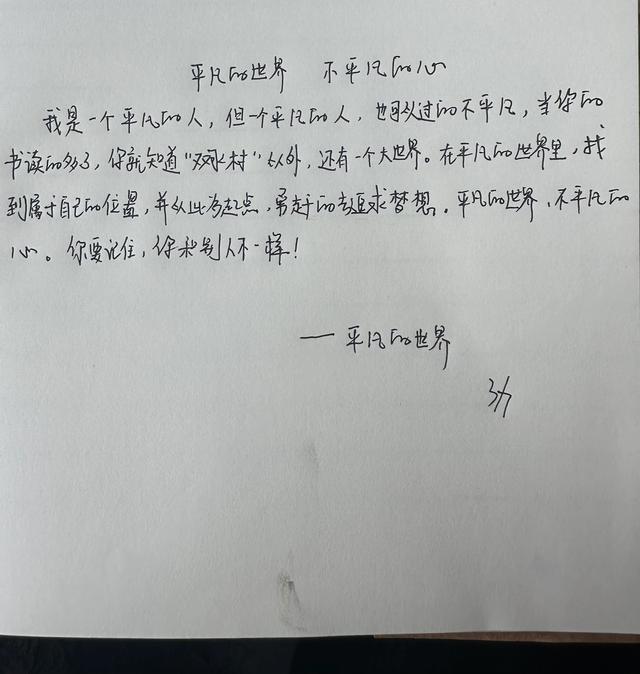 平凡的世界 不平凡的心
我是一个平凡的人，但一个平凡的人，也可以过的不平凡，当你的
书读的多了，你就知道“双水村”以外，还有一个大世界。在平凡的世界里，找
到属于自己的位置，并以此为起点，勇敢的去追求梦想。平凡的世界，不平凡的
心。你要记住，你和别人不一样！
— 平凡的世界